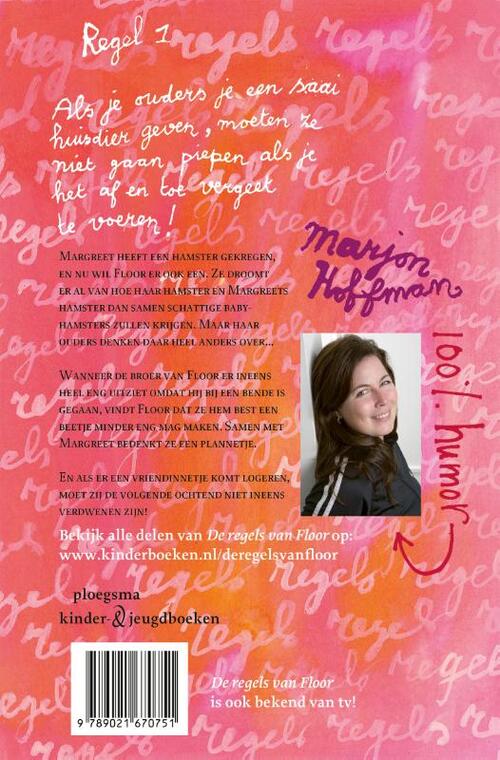 Regel 1
Als je ouders je een saai
huisdier geven, moeten ze
niet gaan piepen als je
het af en toe vergeet
te voeren!
MARGREET HEEFT EEN HAMSTER GEKREGEN,
EN NU WIL FLOOR ER OOK EEN. ZE DROOMT
ER AL VAN HOE HAAR HAMSTER EN MARGREETS
HAMSTER DAN SAMEN SCHATTIGE BABY-
HAMSTERS ZULLEN KRIJGEN. MAAR HAAR
OUDERS DENKEN DAAR HEEL ANDERS OVER...
Marjon
Hoffman
100% humor
WANNEER DE BROER VAN FLOOR ER INEENS
HEEL ENG UITZIET OMDAT HIJ BIJ EEN BENDE IS
GEGAAN, VINDT FLOOR DAT ZE HEM BEST EEN
BEETJE MINDER ENG MAG MAKEN. SAMEN MET
MARGREET BEDENKT ZE EEN PLANNETJE.
EN ALS ER EEN VRIENDINNETJE KOMT LOGEREN,
MOET ZIJ DE VOLGENDE OCHTEND NIET INEENS
VERDWENEN ZIJN!
Bekijk alle delen van De regels van Floor op:
www.kinderboeken.nl/deregelsvanfloor
ploegsma
kinder-& jeugdboeken
De regels van Floor
is ook bekend van tv!
9 789021 670751